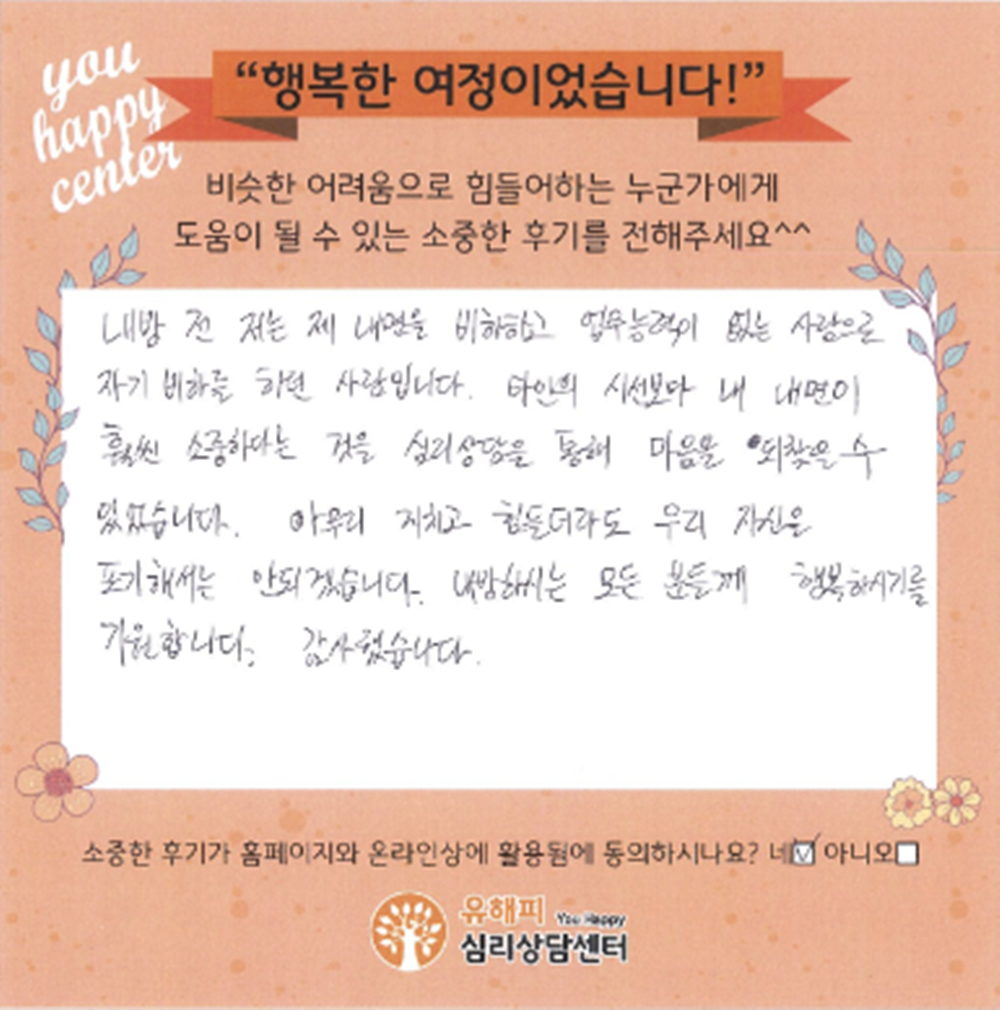 you
happy
center
“행복한 여정이었습니다!”
비슷한 어려움으로 힘들어하는 누군가에게
도움이 될 수 있는 소중한 후기를 전해주세요^^
내방 전 저는 제 내면을 비하하고 업무능력이 없는 사람으로
자기 비하를 하던 사람입니다. 타인의 시선보다 내 내면이
훨씬 소중하다는 것을 심리상담을 통해 마음을 되찾을 수
있었습니다. 아무리 지치고 힘들더라도 우리 자신을
포기해서는 안되겠습니다. 내방하시는 모든 분들께 행복하시기를
기원합니다. 감사했습니다.
소중한 후기가 홈페이지와 온라인상에 활용됨에 동의하시나요? 네☑ 아니오☐
유해피 You Happy
심리상담센터